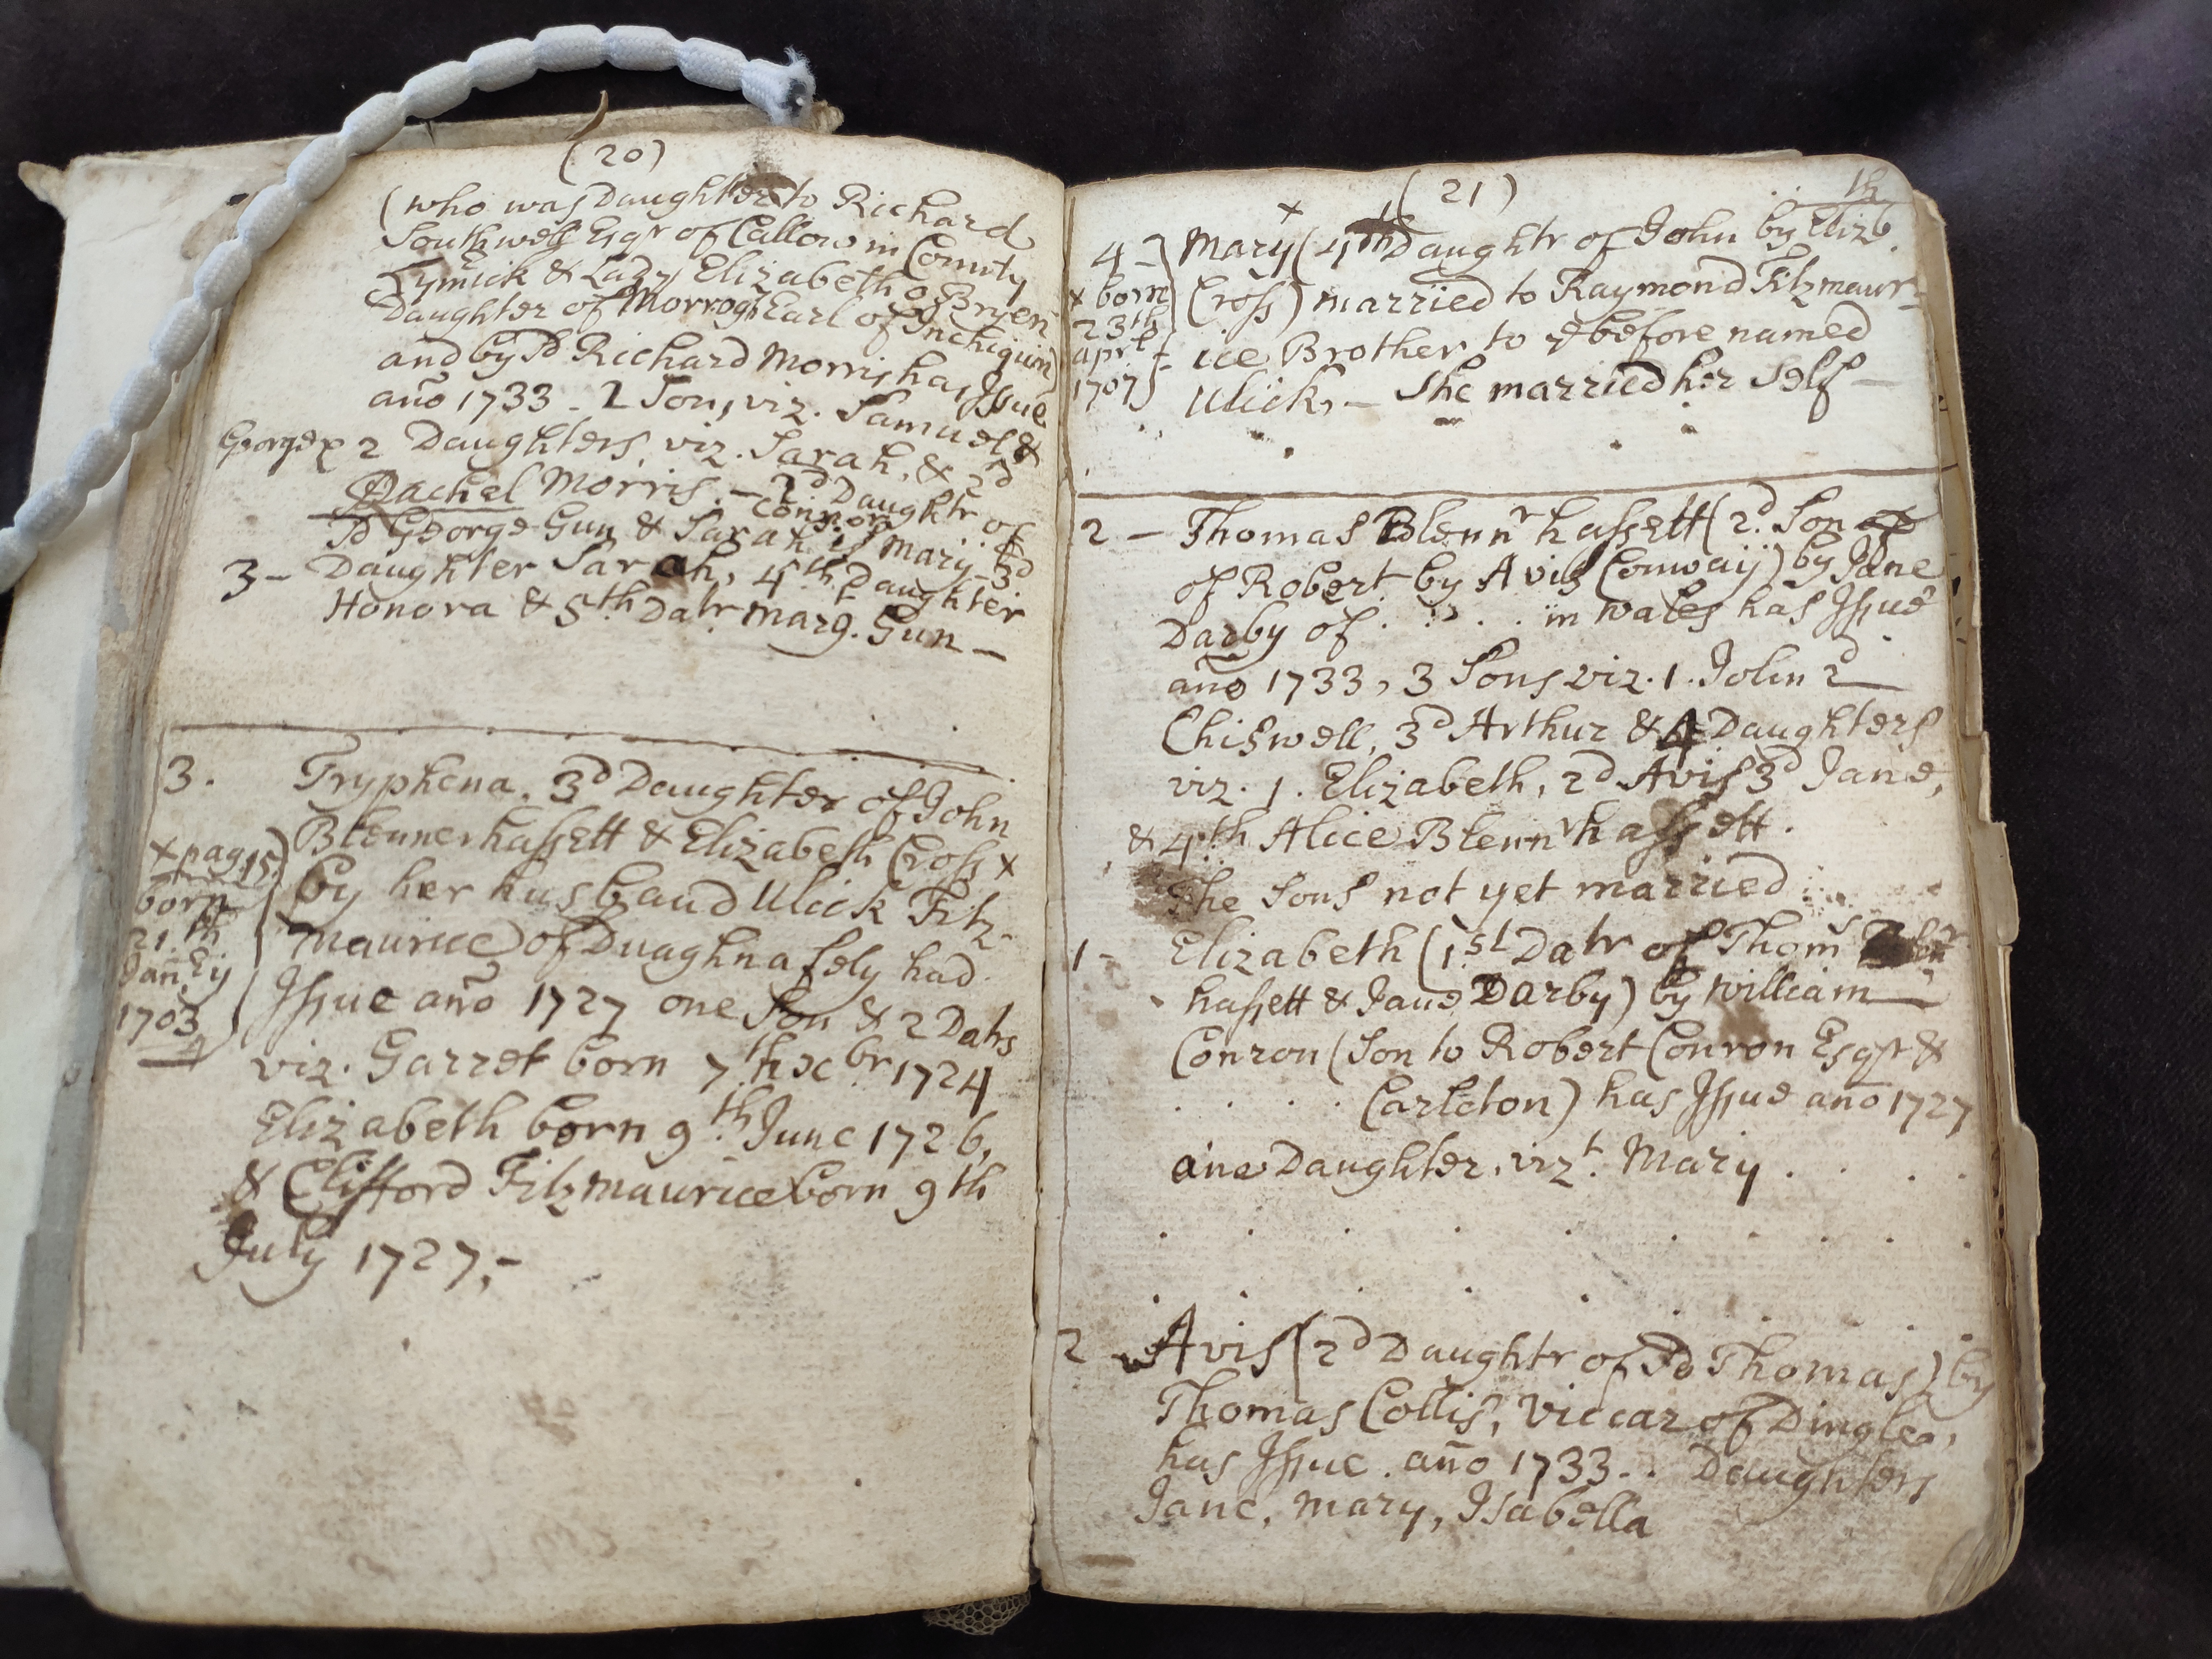 (20)
(who was Daughter to Richard
Southwell Esqr of Callow in County
Lymick & Lady Elizabeth ô Bryen
Daughter of Morrogh Earl of Inchiquin)
and by sd Richard Morris has Issue
año 1733 - 2 Sons, viz. Samuel &
George x 2 Daughters, viz. Sarah, & 2d
Rachel Morris. - 2d Daughtr of
sd George Gun & Sarah Connor is Mary 3d
3 - Daughter Sarah, 4th Daughter
Honora & 5th Datr Marg.t Gun -
3. Tryphena, 3d Daughter of John
Blennerhassett & Elizabeth Cross x
x pag 15.) by her husband Ulick Fitz-
born maurice of Duaghnafely had
21.th Issue año 1727 one Son & 2 Datrs
Jan.ry
1703/4
viz. Garret born 7th xbr 1724
Elizabeth born 9.th June 1726,
& Clifford Fitzmaurice born 9th
July 1727,-
(21)
4 - Mary (4th Daughtr of John by Elizbth
x born Cross) married to Raymond Fitzmaur-
23th
aprl ice Brother to ye before named
1707 Ulick, - She married her Self -
2 - Thomas Blennrhassett (2d. Son of
of Robert by Avis Conway) by Jane
Darby of . . . . in Wales has Issue
año 1733, 3 Sons viz. 1. John 2d
Chiswell, 3d Arthur & 4 Daughters
viz. 1. Elizabeth, 2d Avis 3d Jane,
& 4th Alice Blennrhassett.
The Sons not yet married
1 - Elizabeth (1st Datr of Thoms Blennr
hassett & Jane Darby) by William
Conron (Son to Robert Conron Esqr &
. . . . Carleton) has Issue año 1727
one Daughter, vizt. Mary . . . .
2 - Avis (2d Daughtr of sd Thomas) by
Thomas Collis, Viccar of Dingle,
has Issue . año 1733 . . Daughters
Jane, Mary, Isabella